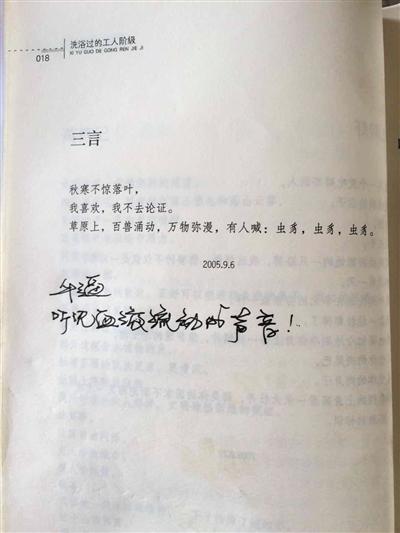 洗浴过的工人阶级
XI YU GUO DE GONG REN JIE JI
018
三言
秋寒不惊落叶，
我喜欢，我不去论证。
草原上，百兽涌动，万物弥漫，有人喊：虫豸，虫豸，虫豸。
2005.9.6
牛逼
听见血液流动的声音！